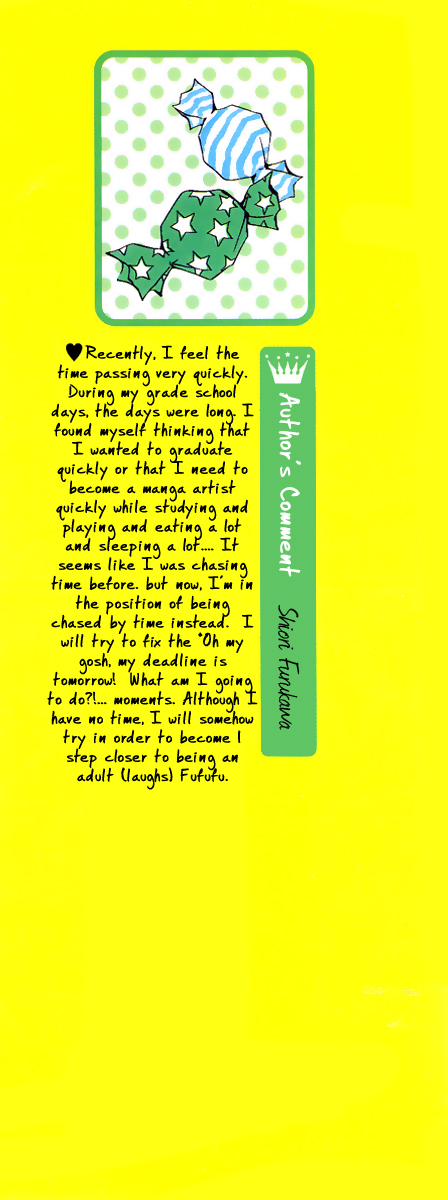 Author's Comment Shiori Furukawa
♥Recently, I feel the
time passing very quickly.
During my grade school
days, the days were long. I
found myself thinking that
I wanted to graduate
quickly or that I need to
become a manga artist
quickly while studying and
playing and eating a lot
and sleeping a lot.... It
seems like I was chasing
time before. but now, I'm in
the position of being
chased by time instead. I
will try to fix the "Oh my
gosh, my deadline is
tomorrow! What am I going
to do?!... moments. Although I
have no time, I will somehow
try in order to become 1
step closer to being an
adult (laughs) Fufufu.